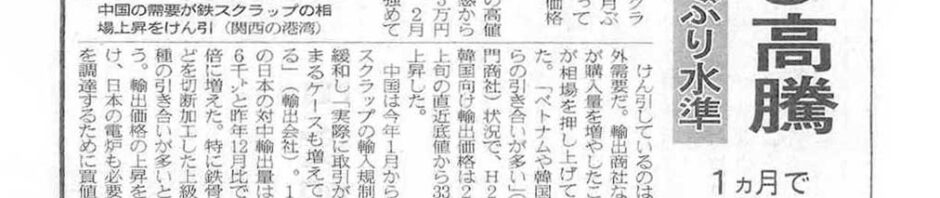 高騰
1ヵ月で
ぶり水準
クラ
月ぶ
って
価格
の高値
感から
万円
2月
強めて
中国の需要が鉄スクラップの相
場上昇をけん引(関西の港湾)
けん引しているのは
外需要だ。輸出商社な
が購入量を増やしたこ
が相場を押し上げて
た。「ベトナムや韓国
らの引き合いが多い」(
門商社)状況で、H2
韓国向け輸出価格は2
上旬の直近底値から33
上昇した。
中国は今年1月から
スクラップの輸入規制
緩和し「実際に取引が
まるケースも増えて
る」(輸出会社)。1
の日本の対中輸出量は
6千トンと昨年12月比で
倍に増えた。特に鉄骨
どを切断加工した上級
種の引き合いが多いと
う。輸出価格の上昇を
け、日本の電炉も必要
を調達するために買値